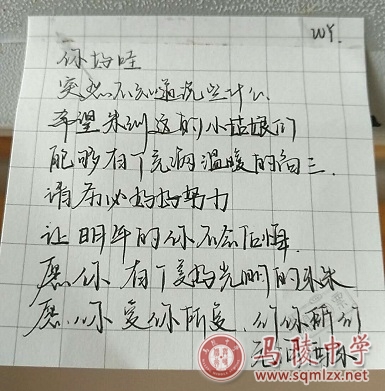 WY.
你好哇
突然不知道说些什么
希望来到这的小姑娘们
能够有个充满温暖的高三.
请务必好好努力
让明年的你不会后悔.
愿你有个美好光明的未来
愿你爱你所爱,
马陵中学
www.sqmlzx.net